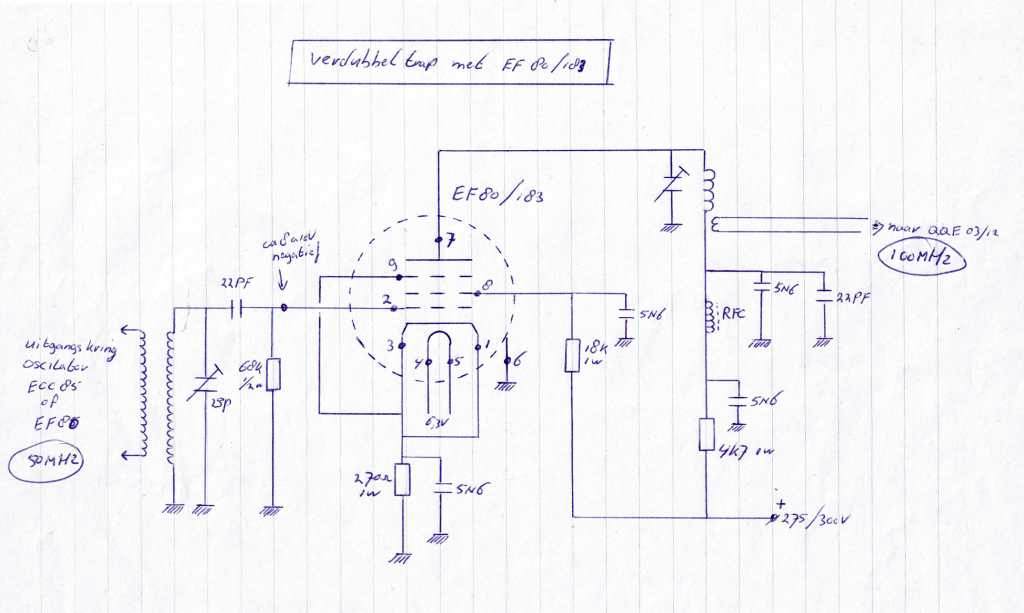 verdubbel trap met EF 80/183
EF80/183
7
9
8
2
3
4
5
1
6
6,3V
22PF
ca 8 a 10V
negatief
68k
1/2w
23P
uitgangskring
oscilator
ECC 85
of
EF80
50MHZ
270Ω
1W
5N6
18K
1W
5N6
naar QQE 03/12
100MHZ
5N6
22PF
RFC
5N6
4K7 1W
+
275/300V